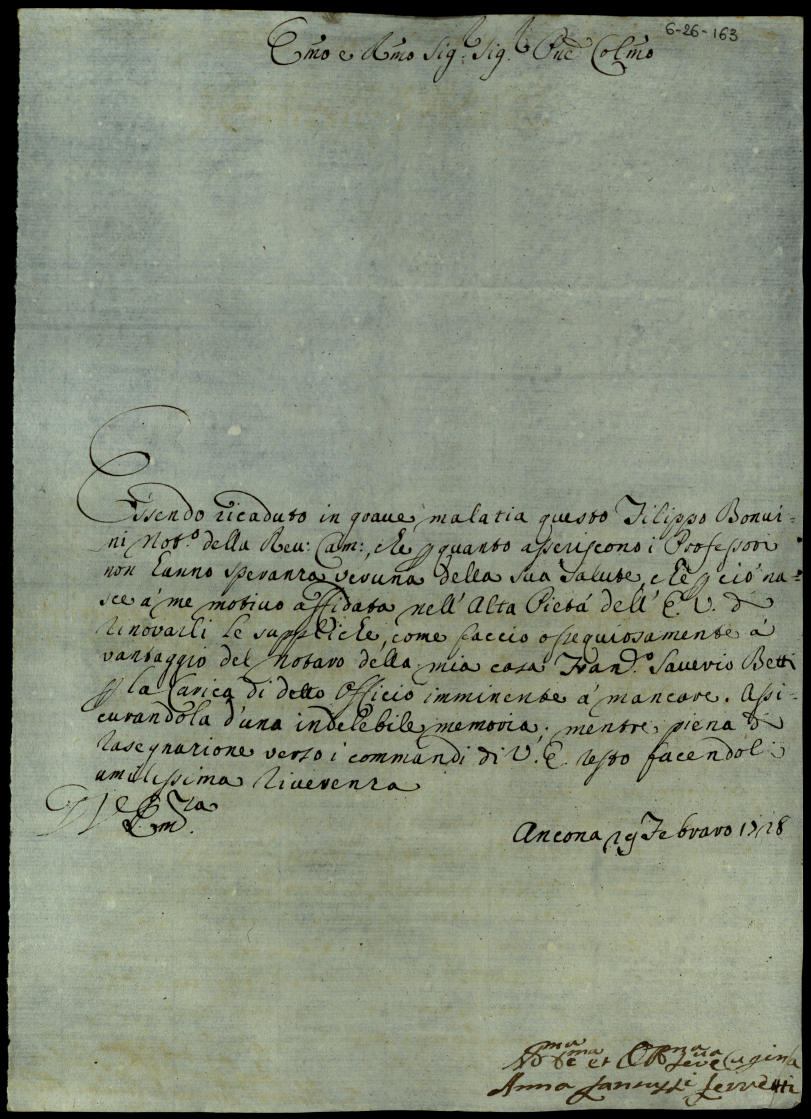 6-26-163
Emo e Rmo Sig.r Sig.r Pne Colmo
Essendo ricaduto in graue malatia questo Filippo Bonui=
ni Not.o della Reu: Cam:, che p quanto asseriscono i Professori
non hanno speranza veruna della sua salute, che p ció na=
sce á me motiuo affidata nell' Alta Pietá dell' E. V. di
rinovarli le suppliche, come faccio ossequiosamente á
vantaggio del notaro della mia casa Fran.o Saverio Betti
p la Carica di detto Officio imminente á mancare. Assi=
curandola d'una indelebile memoria; mentre piena di
rasegnazione verso i commandi di V. E. resto facendoli
umilissima riverenza
Ancona 29 Febraro 1728
et Cugina
Anna Ferretti